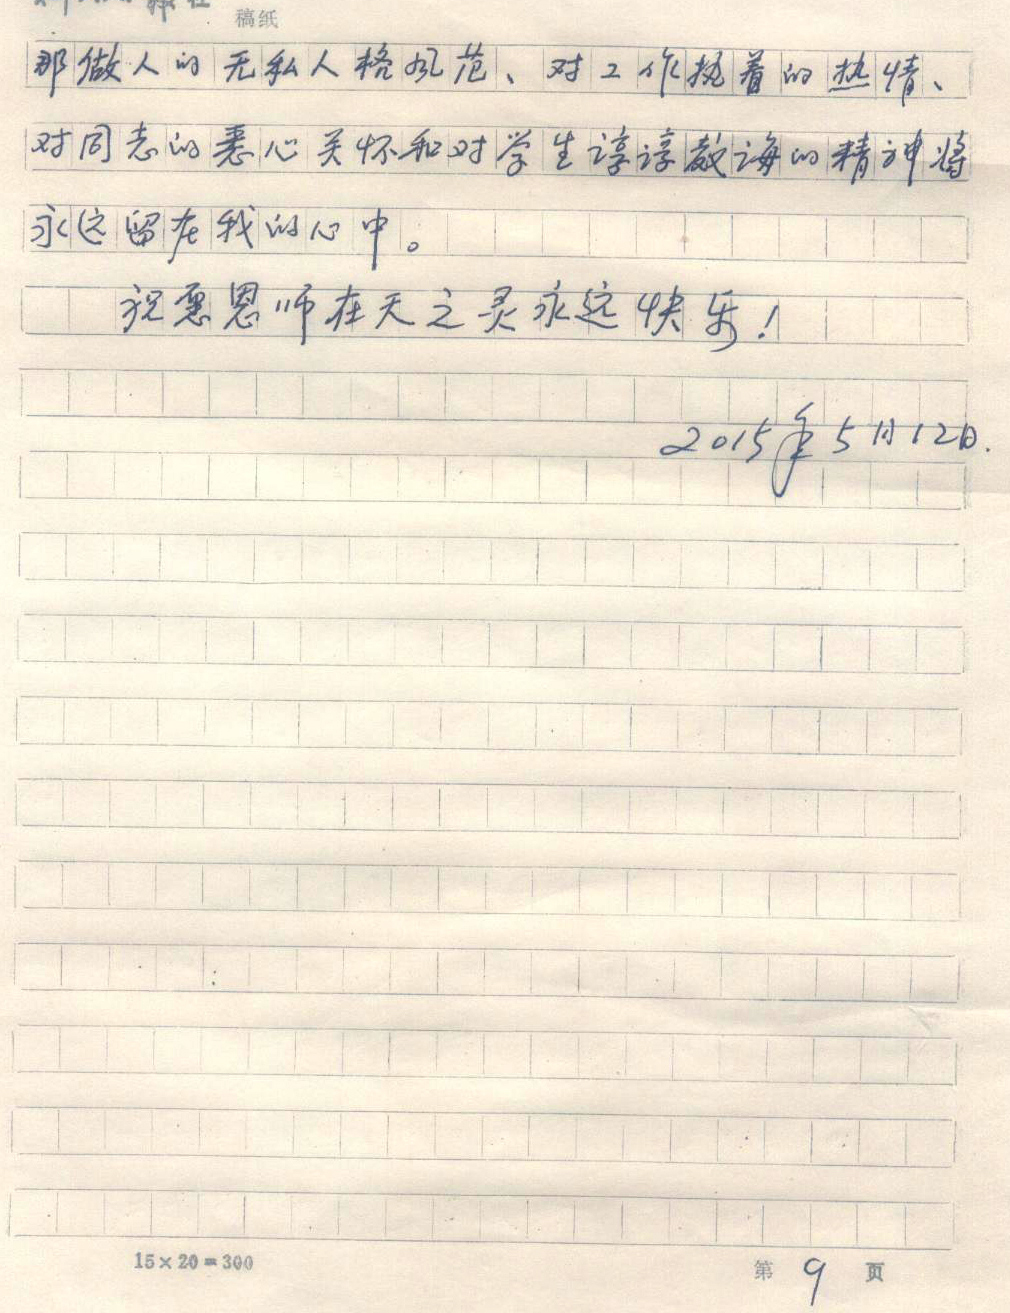 稿纸
那做人的无私人格风范、对工作执着的热情、
对同志的悉心关怀和对学生谆谆教诲的精神将
永远留在我的心中。
祝愿恩师在天之灵永远快乐!
2015年5月12日.
15×20=300
第 9 页